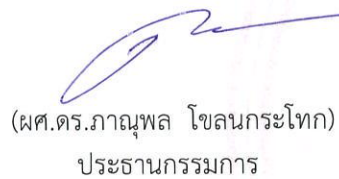 (ผศ.ดร.ภาณุพล โขลนกระโทก)
ประธานกรรมการ